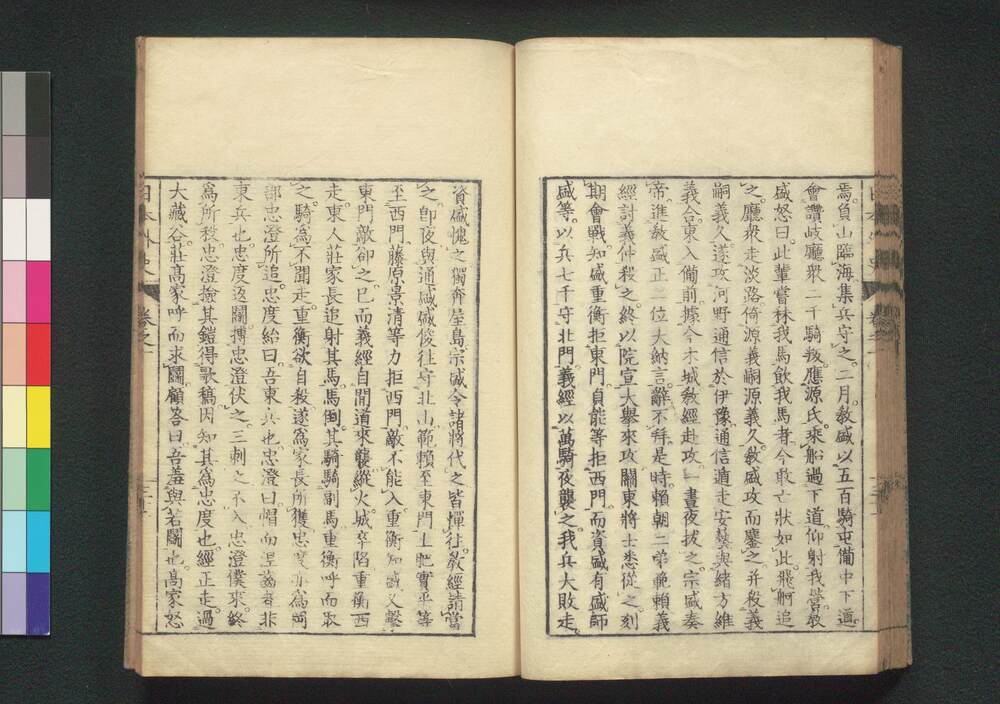 焉負山臨海集兵守之二月教盛以五百騎屯備中下道
會讚岐廳衆二千騎叛應源氏乘船過下道仰射我營教
盛怒曰此輩嘗秣我馬飲我馬者今敢亡狀如此飛舸追
之廳衆走淡路倚源義嗣源義久教盛攻而鏖之并殺義
嗣義久遂攻河野通信於伊豫通信遁走安藝與緒方維
義合東入備前據今木城教經赴攻一晝夜拔之宗盛奏
帝進教盛正二位大納言辭不拜是時賴朝二弟範賴義
經討義仲殺之終以院宣大舉來攻關東將士悉從之刻
期會戰知盛重衡拒東門貞能等拒西門而資盛有盛師
盛等以兵七千守北門義經以萬騎夜襲之我兵大敗走
資盛愧之獨奔屋島宗盛令諸將代之皆憚往教經請當
之即夜與通盛盛俊往守北山範賴至東門土肥實平等
至西門藤原景清等力拒西門敵不能入重衡知盛又擊
東門敵卻之已而義經自間道來襲縱火城卒陷重衡西
走東人莊家長追射其馬馬倒其騎騎副馬重衡呼而取
之騎爲不聞走重衡欲自殺遂爲家長所獲忠度亦爲岡
部忠澄所追忠度紿曰吾東兵也忠澄曰帽而涅齒者非
東兵也忠度返鬭搏忠澄伏之三刺之不入忠澄僕來終
爲所殺忠澄撿其鎧得歌稿因知其爲忠度也經正走過
大藏谷莊高家呼而求鬭顧答曰吾羞與若鬭也高家怒
日本外史
卷之二